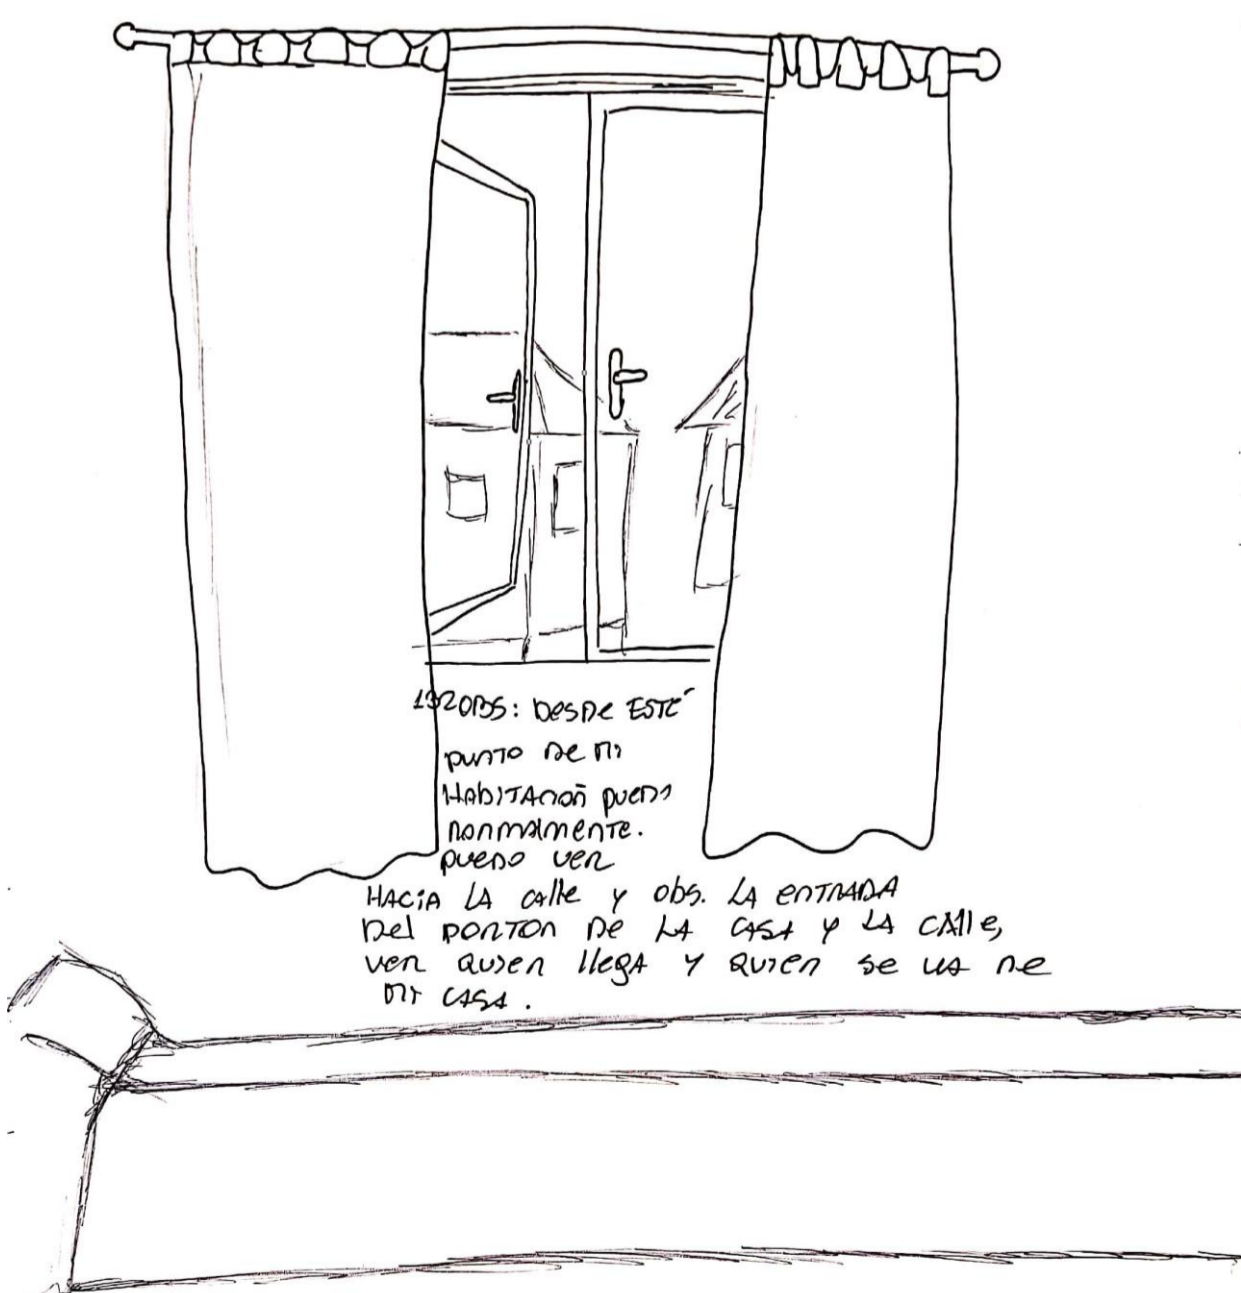 OBS: DESDE ESTÉ
PUNTO DE MI
HABITACIÓN PUEDO
NORMALMENTE.
PUEDO VER
HACIA LA CALLE Y OBS. LA ENTRADA
DEL PORTON DE LA CASA Y LA CALLE,
VER QUIEN LLEGA Y QUIEN SE VA DE
MI CASA.